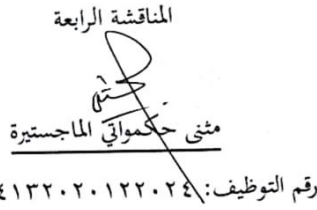 المناقشة الرابعة
مثنى حكمواتي الماجستيرة
رقم التوظيف: ٤١٣٢٠٢٠١٢٢٠٢٤